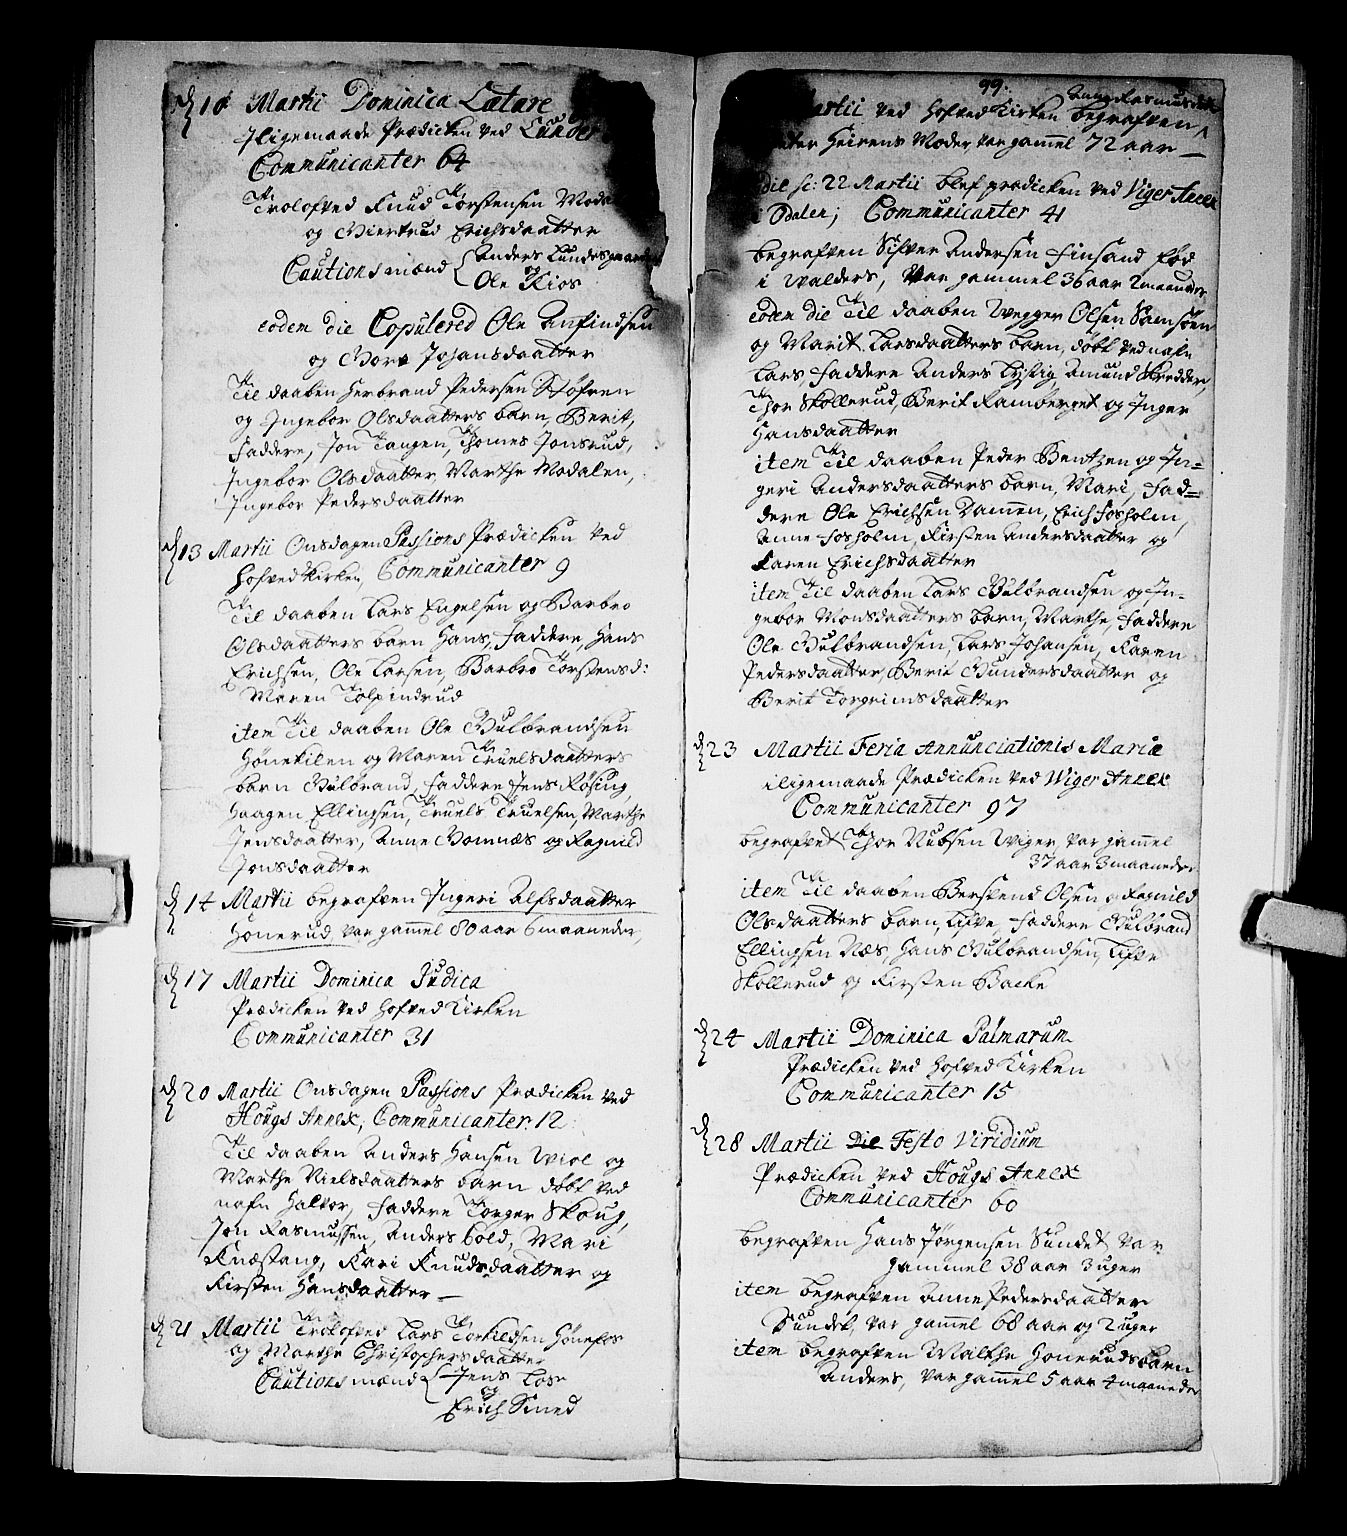 D 10 Martii Dominica Lætare
Iligemaade Prædicken ved Lunder
Communicanter 64
Trolofved Knud Torstensen Moda
og Giertrud Erichsdaatter
Cautionsmænd { Anders Lundesgaarden
og
Ole Kios
eodem die Copulered Ole Anfindsen
og Gore Johansdaatter
Til daaben Herbrand Pedersen Støfren
og Ingebor Olsdaatters barn, Berit,
Faddere, Jon Tangen, Thomes Jonsrud,
Ingebor Olsdaatter, Marthe Modalen,
Ingebor Pedersdaatter
D 13 Martii Onsdagen Passions Prædicken ved
Hofved Kirken, Communicanter 9
Til daaben Lars Engelsen og Barbro
Olsdaatters barn Hans, Faddere, Hans
Erichsen, Ole Larsen, Barbro Torstensd:
Maren Tolpindrud
item Til daaben Ole Gulbrandsen
Hønekilen og Maren Truelsdaatters
barn Gulbrand, Faddere Jens Røsing,
Haagen Ellingsen, Truels Truelsen, Marthe
Jensdaatter, Anne Gomnæs og Ragnild
Jonsdaatter
D 14 Martii begrafven Ingeri Alfsdaatter
Hønerud, var gammel 80 aar 6 maaneder,
D 17 Martii Dominica Judica
Prædicken ved Hofved Kirken
Communicanter 31
D 20 Martii Onsdagen Passions Prædicken ved
Hougs Annex, Communicanter 12
Til daaben Anders Hansen Wiol og
Marthe Nielsdaatters barn døbt ved
nafn Halvor, Faddere Torger Skoug,
Jon Rasmussen, Anders Bold, Mari
Knæstang, Kari Knudsdaatter og
Kirsten Hansdaatter
D 21 Martii Trolofved Lars Torkildsen Hønefos
og Marthe Christophersdaatter
Cautionsmænd { Jens Losr
og
Erich Smed
99.
Martii ved Hofved Kirken begrafven Anne Rasmusdatter
Peter Heirens Moder var gammel 72 aar
die sc: 22 Martii blef prædicken ved Viger Annex
i Odalen; Communicanter 41
begrafven Sifver Andersen Finsand fød
i Walders, Var gammel 36 aar 2 maaneder
eodem die Til daaben Wegger Olsen Samsøen
og Marit Larsdaatters barn, døbt ved nafn
Lars, Faddere Anders Lystig, Amund Skredder,
Thor Skollerud, Berit Ramberget og Inger
Hansdaatter
item Til daaben Peder Bentzen og In-
geri Andersdaatters barn, Mari, Fad=
dere Ole Erichsen Damen, Erich Fosholm,
Anne Fosholm, Kirsten Andersdaatter og
Karen Erichsdaatter
item Til daaben Lars Gulbrandsen og In-
gebor Monsdaatters barn, Marthe, Faddere
Ole Gulbrandsen, Lars Johansen, Karen
Pedersdaatter, Berit Gundersdaatter og
Berit Torgrimsdaatter
D 23 Martii Feria Annunciationis Mariæ
iligemaade Prædicken ved Wiger Annex
Communicanter 97
begrafvet Thor Nubsen Wiger, var gammel
37 aar 3 maaneder
item Til daaben Berstend Olsen og Ragnild
Olsdaatters barn, Lifve, Faddere Gulbrand
Ellingsen Næs, Hans Gulbrandsen, Lifve
Skollerud og Kirsten Backe
D 24 Martii Dominica Palmarum
Prædicken ved Hofved Kirken
Communicanter 15
D 28 Martii Die Festo Viridium
Prædicken ved Hougs Annex
Communicanter 60
begrafven Hans Jørgensen Sundet var
gammel 38 aar 3 uger
item begrafven Anne Pedersdaatter
Sundet, var gammel 68 aar og 2 uger
item begrafven Malthe Honeruds barn
Anders, var gammel 5 aar 4 maaneder